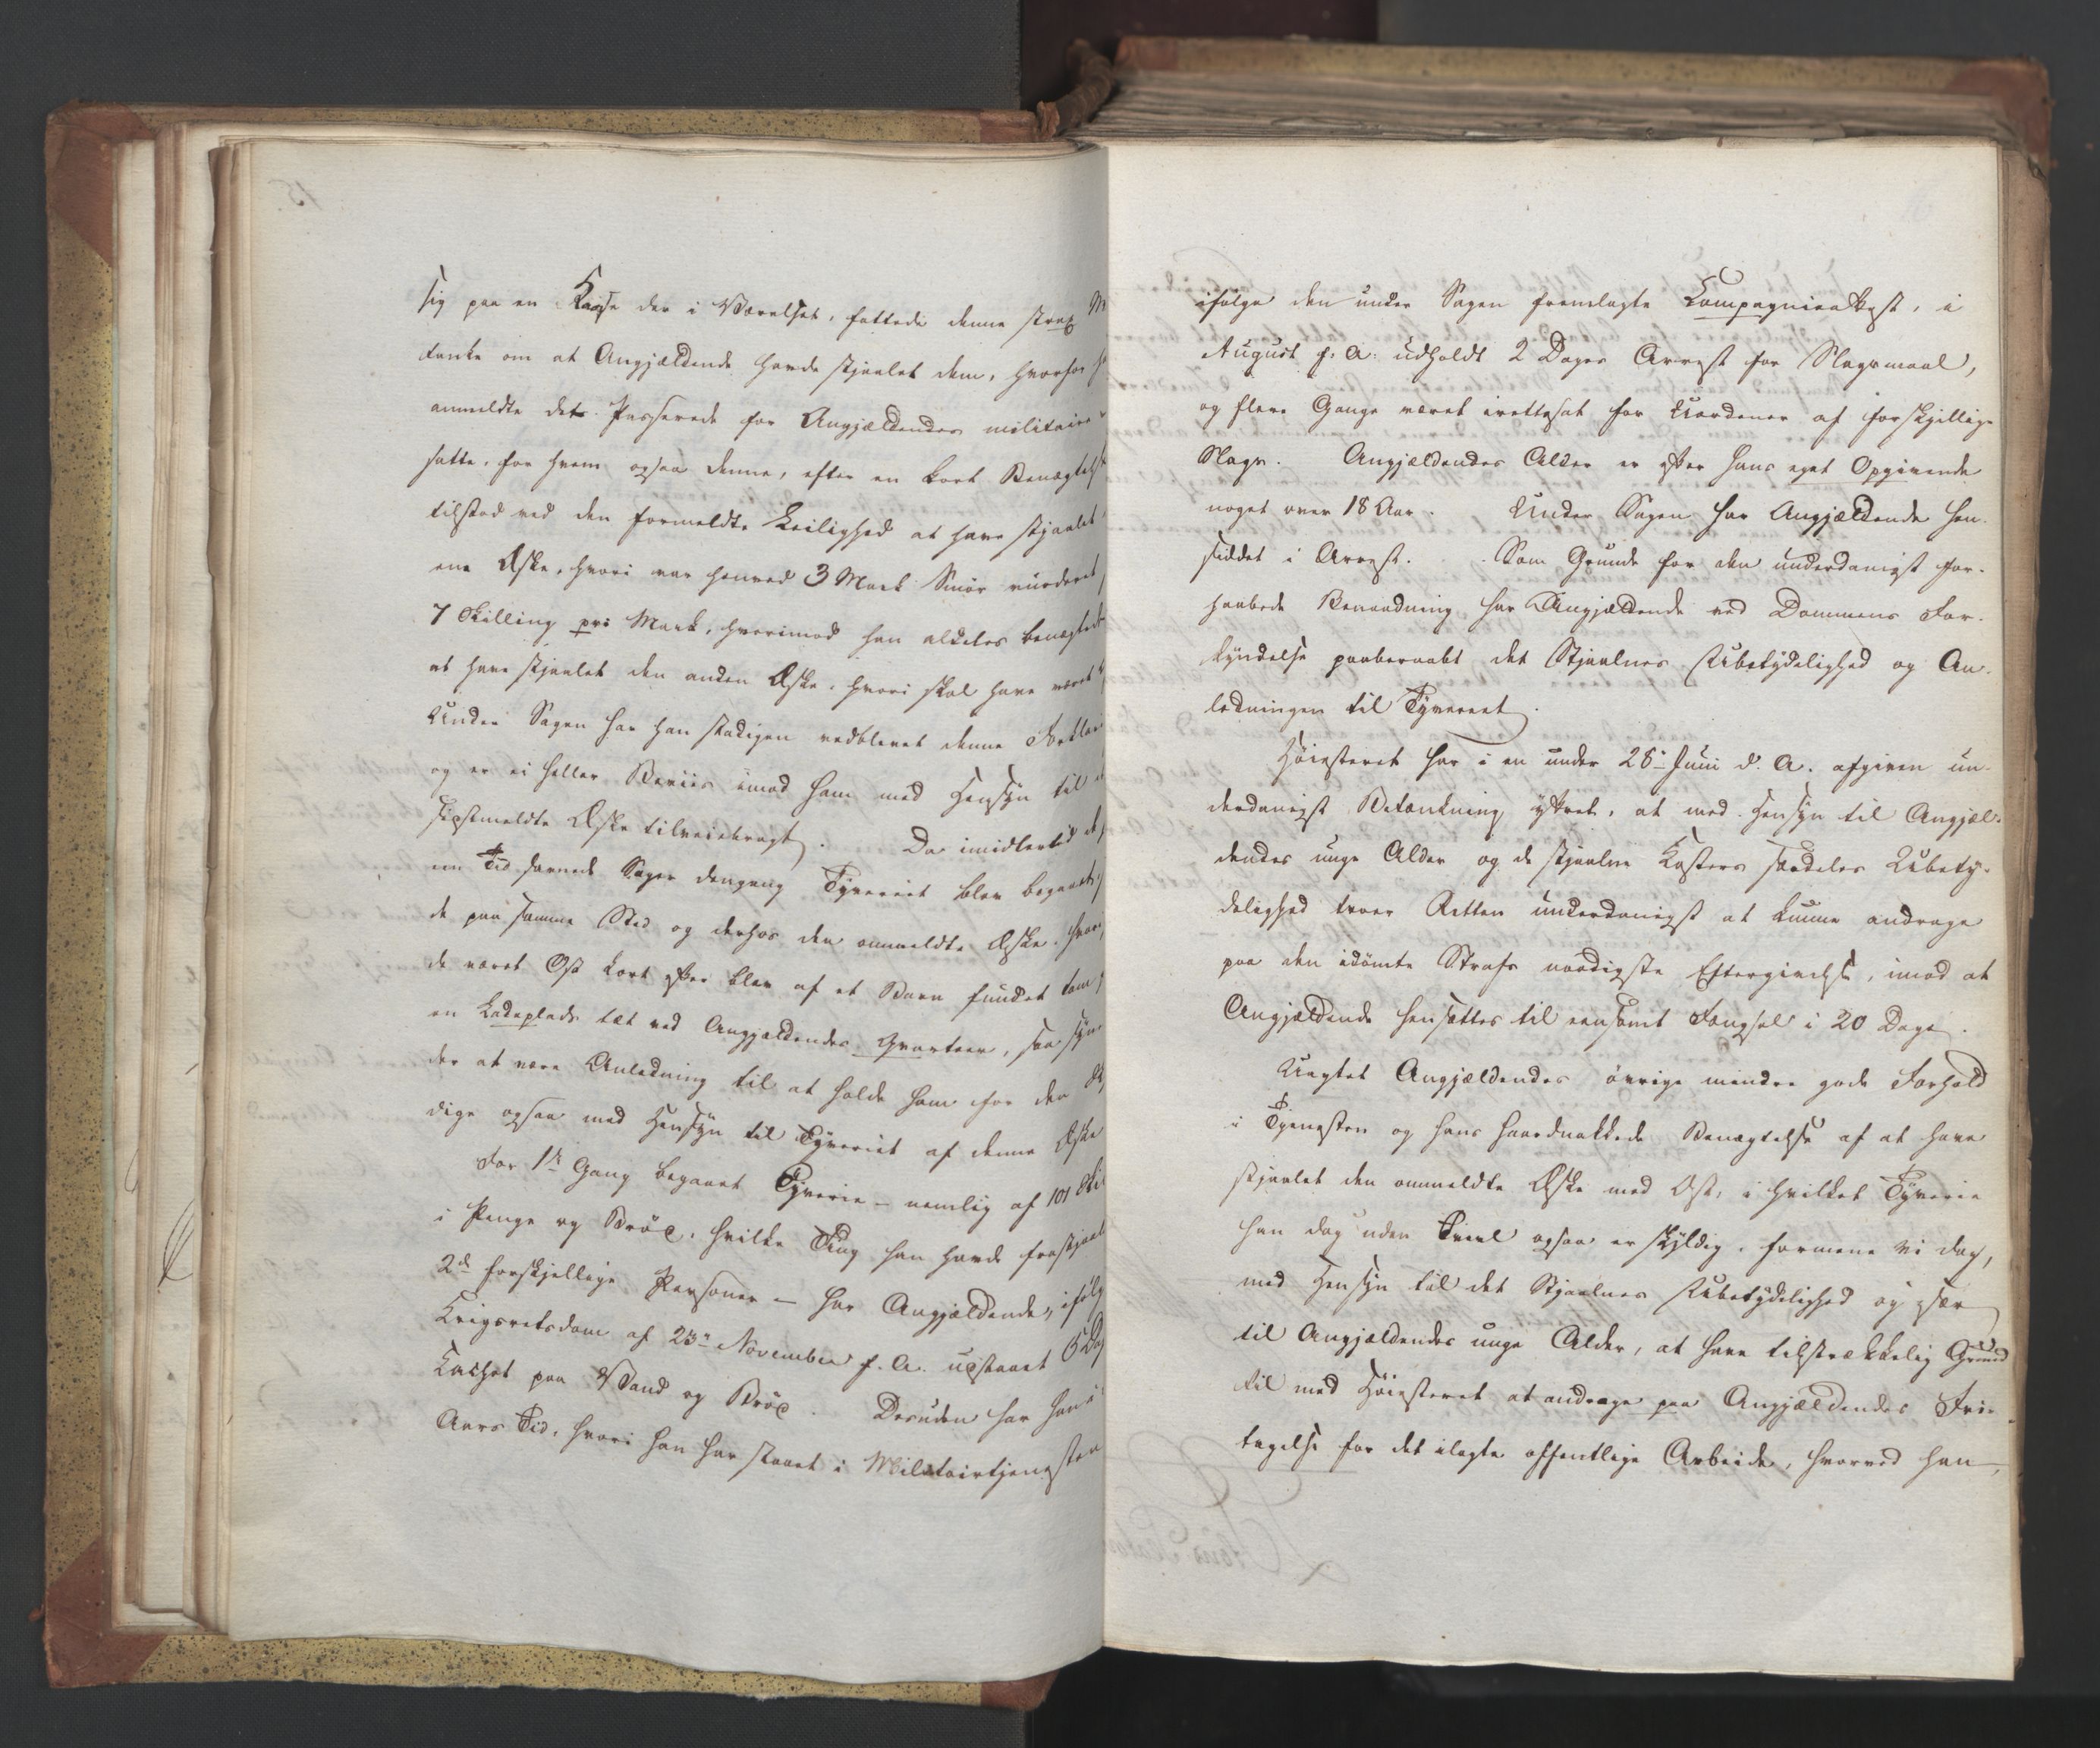 sig paa en Kasse der i Værelset, fattede denne strax M
tanke om at Angjældende havde stjaalet dem, hvorfor h
anmeldte det Passerede for Angjældendes militaire
satte, for hvem ogsaa denne, efter en kort Benægtelse
tilstod ved den formeldte Leilighed at have stjaalet
ene Æske, hvori var henved 3 Mark Smør vurderet
7 Skilling pr: Mark, hvorimod han aldeles benægtede
at have stjaalet den anden Æske, hvori skal have været
Under Sagen har han stadigen vedblevet denne Forklar
og er ei heller Beviis imod ham med Hensyn til
sidstmeldte Æske tilveiebragt. Da imidlertid
Tid savnede Sager dengang Tyveriet blev begaaet,
de paa samme Sted og derhos den ommeldte Æske, hvor
de været Ost kort efter blev af et Barn fundet tom
en Ladeplads tæt ved Angjældendes Qvarteer, saa syn
der at være Anledning til at holde ham for den
dige ogsaa med Hensyn til Tyveriet af denne Æske
For 1ste Gang begaaet Tyverie – nemlig af 101 Skil
i Penge og Brød, hvilke Ting han havde frastjaal
2de forskjellige Personer – har Angjældende, ifølg
Krigsretsdom af 23de November f. A. udstaaet 6 Dag
Cachot paa Vand og Brød. Desuden har han i
Aars Tid, hvori han har staaet i Militairtjenesten
ifølge den under Sagen fremlagte Compagnieattest, i
August f. A. udholdt 2 Dages Arrest for Slagsmaal,
og flere Gange været irettesat for Uordener af forskjellige
Slags. Angjældendes Alder er efter hans eget Opgivende
noget over 18 Aar. Under Sagen har Angjældende hen-
siddet i Arrest. Som Grunde for den underdanigst for-
haabede Benaadning har Angjældende ved Dommens For-
kyndelse paaberaabt det Stjaalnes Ubetydelighed og An-
ledningen til Tyveriet.
Høiesteret har i en under 28de Juni d. A. afgiven un-
derdanigst Betænkning yttret, at med Hensyn til Angjæl-
dendes unge Alder og de stjaalne Kosters særdeles Ubety-
delighed troer Retten underdanigst at kunne andrage
paa den idømte Strafs naadigste Eftergivelse, imod at
Angjældende hensættes til eensomt Fængsel i 20 Dage.
Uagtet Angjældendes øvrige mindre gode Forhold
i Tjenesten og hans haardnakkede Benægtelse af at have
stjaalet den ommeldte Æske med Ost, i hvilket Tyverie
han dog uden Tvivl ogsaa er skyldig, formene vi dog,
med Hensyn til det Stjaalnes Ubetydelighed og især
til Angjældendes unge Alder, at have tilstrækkelig Grund
til med Høiesteret at andrage paa Angjældendes Fri-
tagelse for det ilagte offentlige Arbeide, hvorved han,